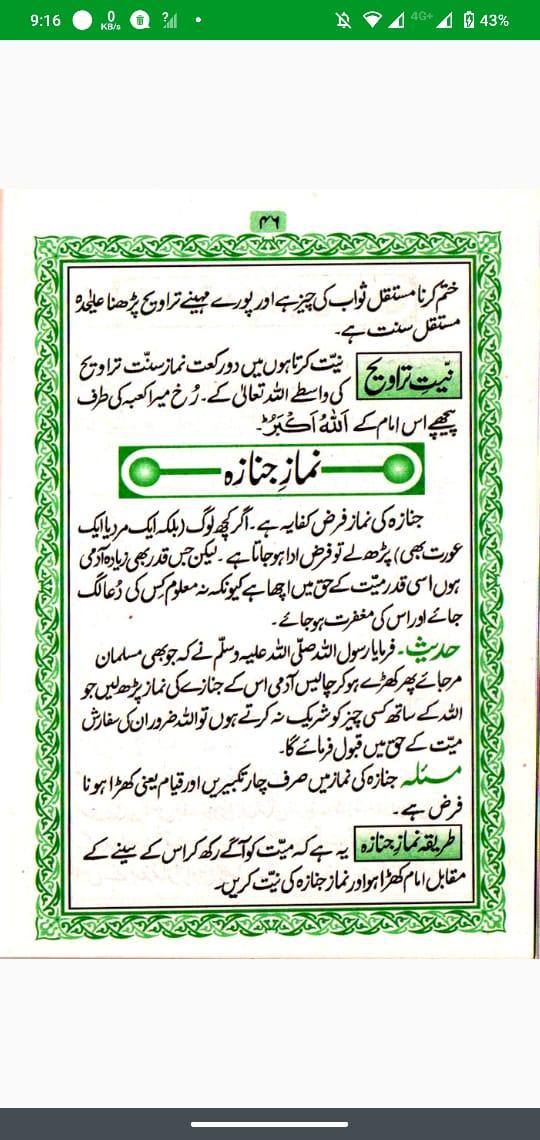 9:16
0
KB/s
?
4G+
43%
۴۶
ختم کرنا مستقل ثواب کی چیز ہے اور پورے مہینے تراویح پڑھنا علیٰحدہ
مستقل سنت ہے۔
نیّتِ تراویح
نیّت کرتا ہوں میں دو رکعت نماز سنّت تراویح
کی واسطے اللہ تعالیٰ کے۔ رُخ میرا کعبہ کی طرف
پیچھے اس امام کے اَللّٰهُ اَكْبَرُ ط۔
نمازِ جنازہ
جنازہ کی نماز فرض کفایہ ہے۔ اگر کچھ لوگ (بلکہ ایک مرد یا ایک
عورت بھی) پڑھ لے تو فرض ادا ہو جاتا ہے۔ لیکن جس قدر بھی زیادہ آدمی
ہوں اسی قدر میّت کے حق میں اچھا ہے کیونکہ نہ معلوم کس کی دُعا لگ
جائے اور اس کی مغفرت ہو جائے۔
حدیث۔ فرمایا رسول اللہ صلّی اللہ علیہ وسلّم نے کہ جو بھی مسلمان
مر جائے پھر کھڑے ہو کر چالیس آدمی اس کے جنازے کی نماز پڑھ لیں جو
اللہ کے ساتھ کسی چیز کو شریک نہ کرتے ہوں تو اللہ ضرور ان کی سفارش
میّت کے حق میں قبول فرمائے گا۔
مسئلہ جنازہ کی نماز میں صرف چار تکبیریں اور قیام یعنی کھڑا ہونا
فرض ہے۔
طریقہ نمازِ جنازہ یہ ہے کہ میّت کو آگے رکھ کر اس کے سینے کے
مقابل امام کھڑا ہو اور نماز جنازہ کی نیّت کریں۔